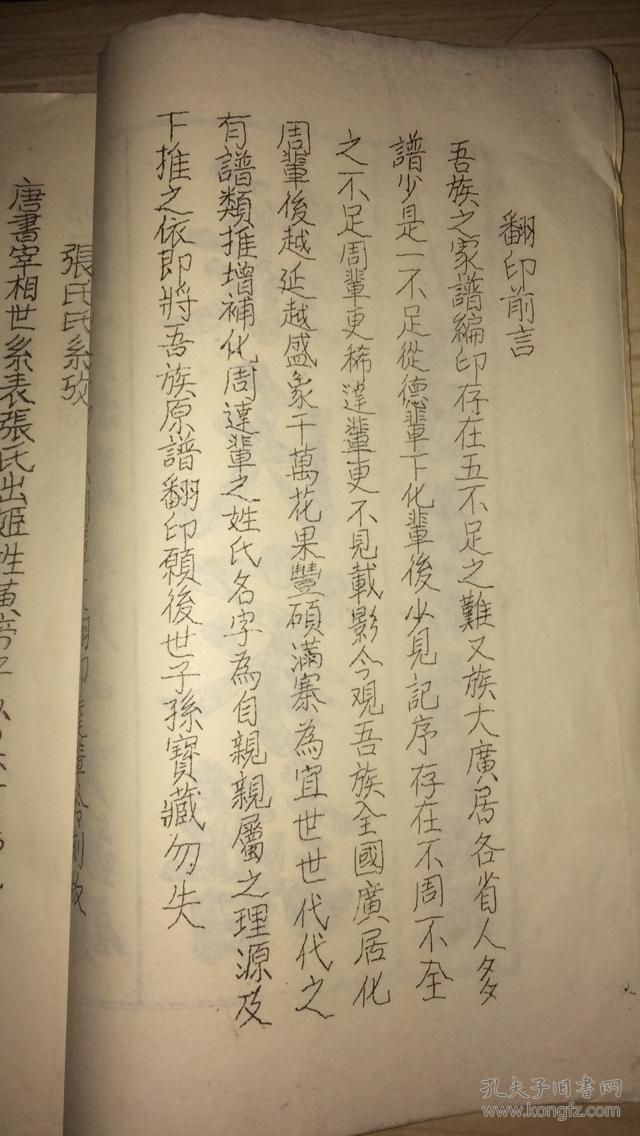 翻印前言
吾族之家譜編印存在五不足之難又族大廣居各省人多
譜少是一不足從德輩下化輩後少見記序存在不周不全
之不足周輩更稀達輩更不見載影今观吾族全國廣居化
周輩後越延越盛象千萬花果豐碩滿寨為宜世世代代之
有譜類推增補化周達輩之姓氏名字為自親親屬之理源及
下推之依即將吾族原譜翻印願後世子孫寶藏勿失
張氏氏系攷
唐書宰相世系表張氏出姬姓黃帝子
孔夫子旧书网
www.kongfz.com